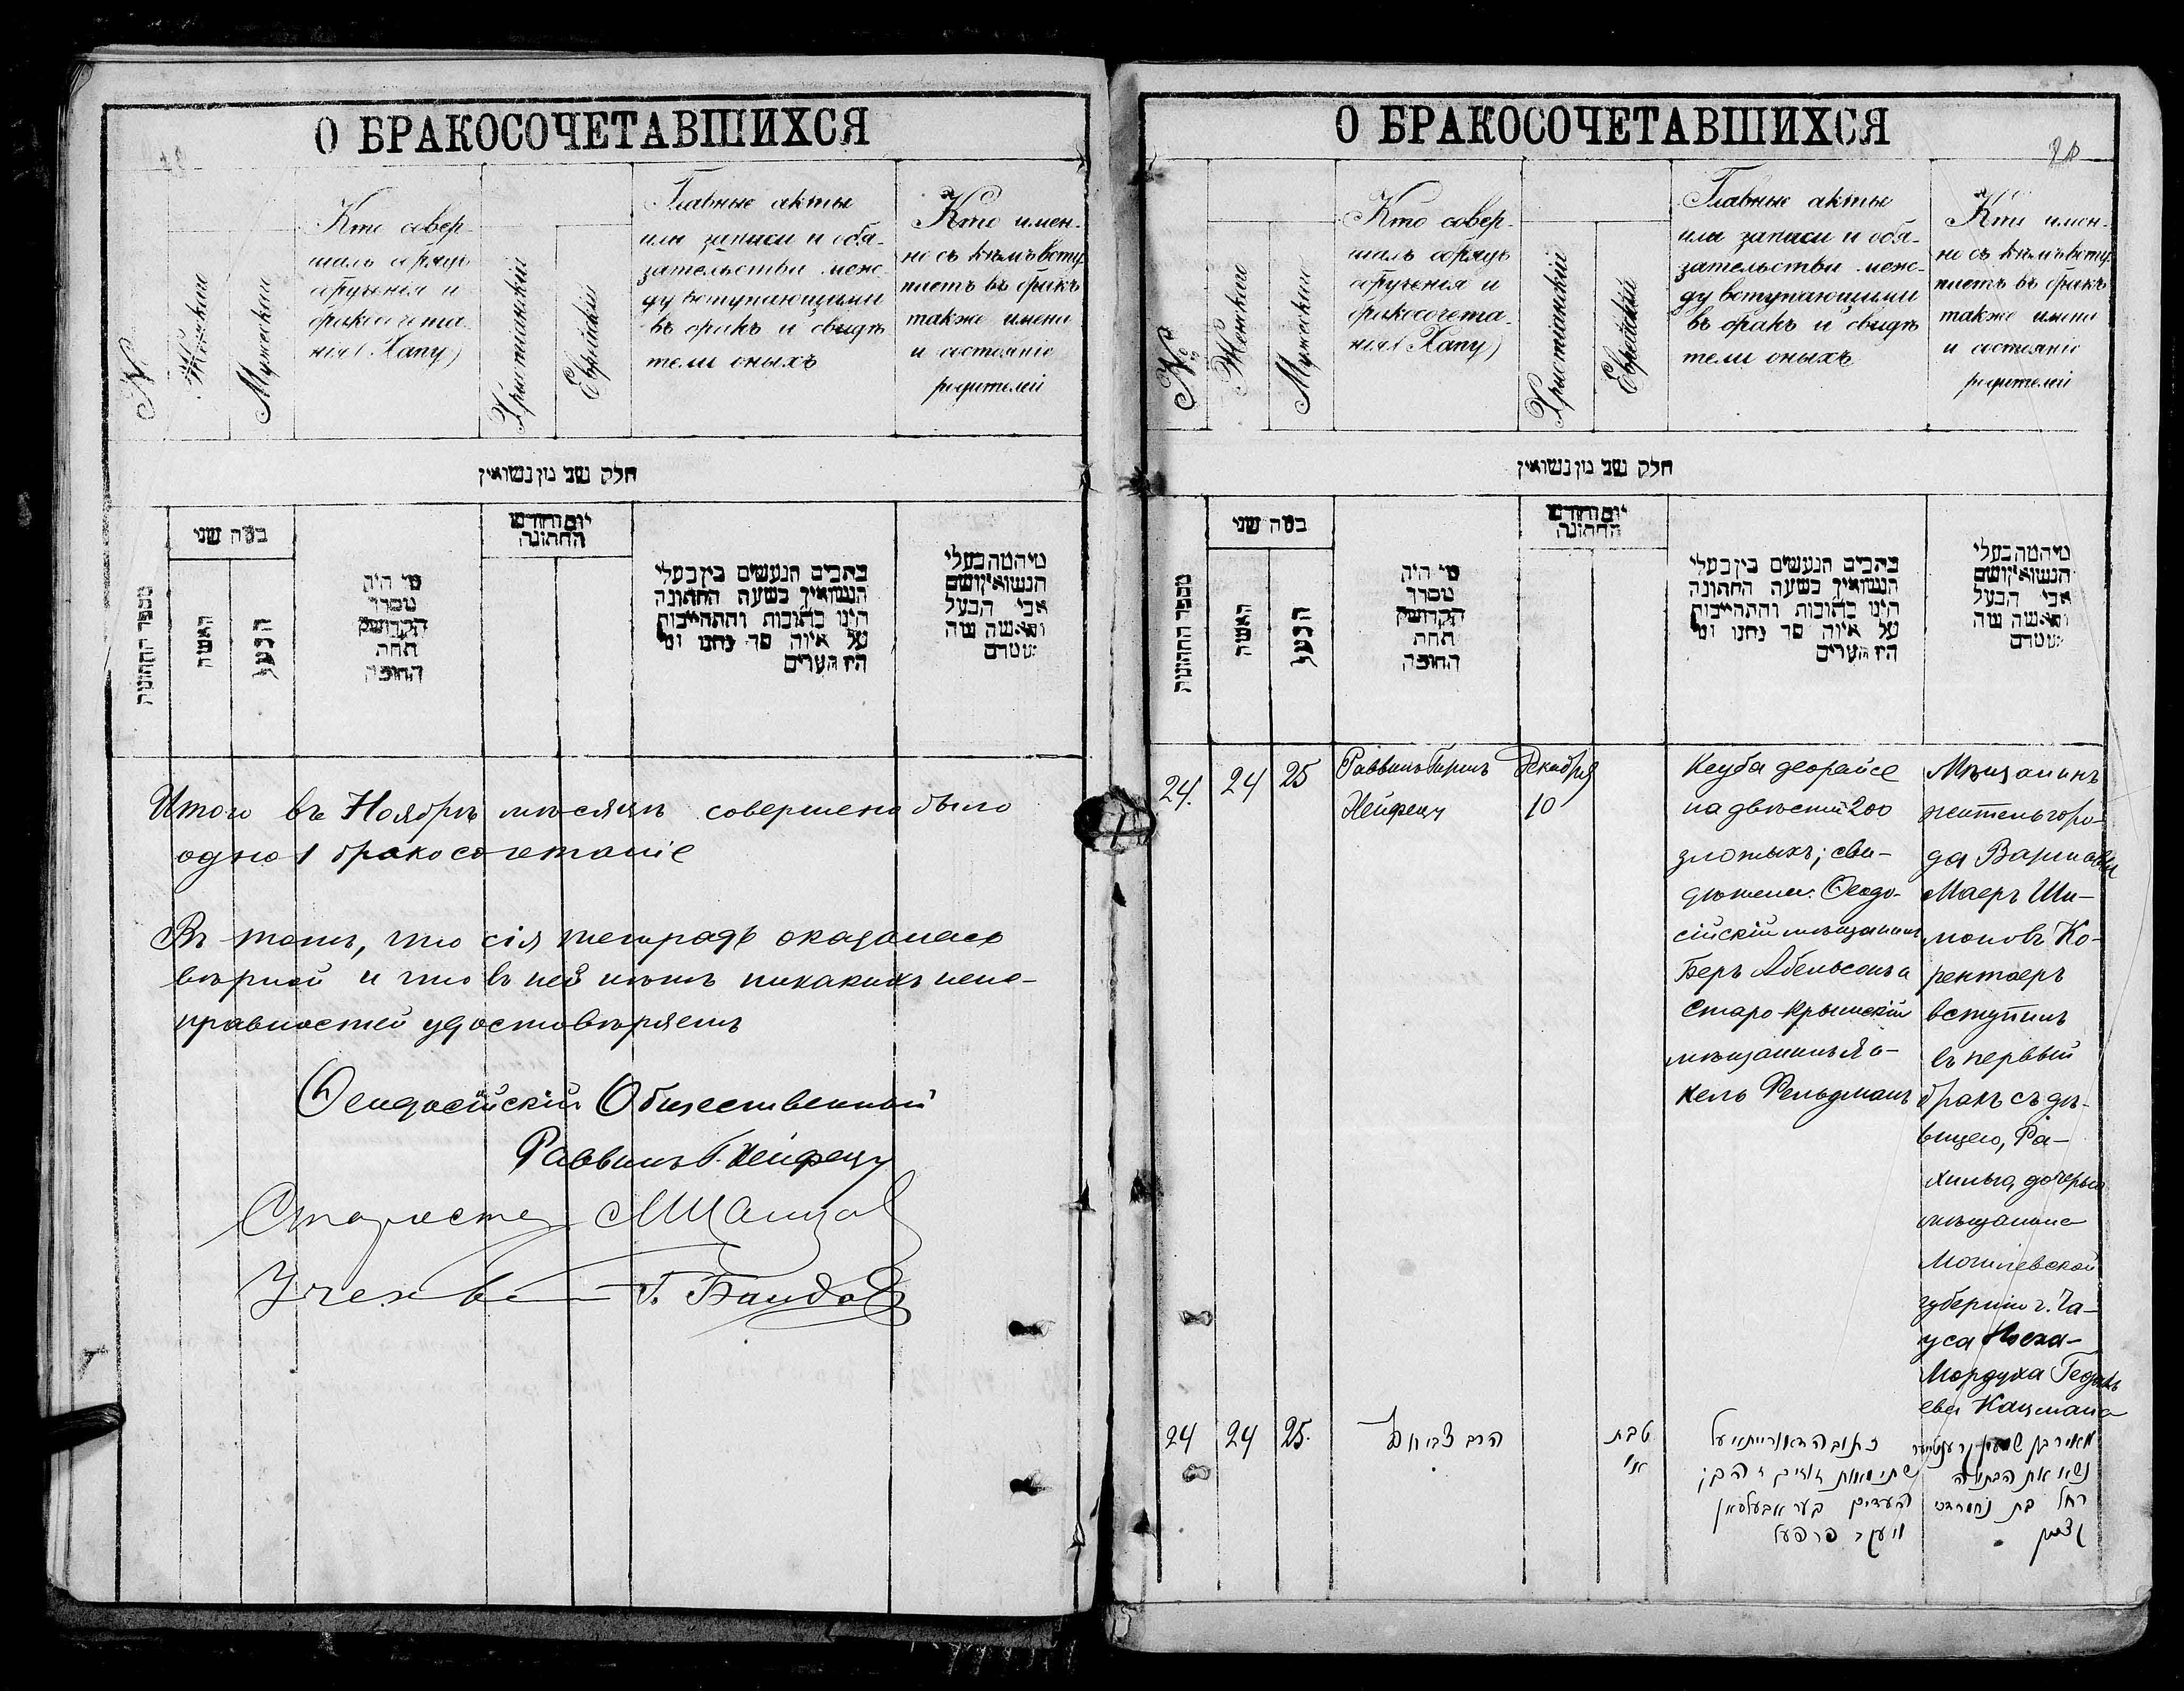 О БРАКОСОЧЕТАВШИХСЯ
№
Женскаго
Мужескаго
Кто совер-
шалъ обрядъ
обрученія и
бракосочета-
нія (Хапу)
Христіанскій
Еврейскій
Главные акты
или записи и обя-
зательства меж-
ду вступающими
въ бракъ и свидѣ
тели оныхъ
Кто имен-
но съ кѣмъ всту-
паетъ въ бракъ
также имена
и состояніе
родителей
חלק שני מן נשואין
מספר החתונות
במה שני
האשה
הבעל
מי היה
מסדר
הקדושין
תחת
החופה
יום וחודש
החתונה
כתבים הנעשים בין בעלי
הנשואין בשעה החתונה
היינו כתובות והתחייבות
על איזה סך נתנו ומי
היו העדים
מי המה בעלי
הנשואין ושם
אבי הבעל
והאשה
Итого въ Ноябрѣ мѣсяцѣ совершено было
одно 1 бракосочетаніе
Въ томъ, что сія тетрадь оказалась
вѣрной и что въ ней нѣтъ никакихъ неис-
правностей удостовѣряемъ
Ѳеодосійскій Общественный
Раввинъ Г. Хейфецъ
Староста
О БРАКОСОЧЕТАВШИХСЯ
№
Женскаго
Мужескаго
Кто совер-
шалъ обрядъ
обрученія и
бракосочета-
нія (Хапу)
Христіанскій
Еврейскій
Главные акты
или записи и обя-
зательства меж-
ду вступающими
въ бракъ и свидѣ
тели оныхъ
Кто имен-
но съ кѣмъ всту-
паетъ въ бракъ
также имена
и состояніе
родителей
חלק שני מן נשואין
מספר החתונות
במה שני
האשה
הבעל
מי היה
מסדר
הקדושין
תחת
החופה
יום וחודש
החתונה
כתבים הנעשים בין בעלי
הנשואין בשעה החתונה
היינו כתובות והתחייבות
על איזה סך נתנו ומי
היו העדים
מי המה בעלי
הנשואין ושם
אבי הבעל
והאשה
24.
24
25
Раввинъ Гиршъ
Хейфецъ
Декабря
10
Кеуба деорайсе
на двѣсти 200
злотыхъ; сви-
дѣтели: Ѳеодо-
сійскій мѣщанинъ
Беръ Абельсонъ и
Старо-Крымскій
мѣщанинъ Я-
кель Фельдманъ
Мѣщанинъ
житель горо-
да Варшавы
Маеръ Ши-
моновъ Ко-
рентаеръ
вступилъ
въ первый
бракъ съ дѣ-
вицею, Ра-
хилью, дочерью
мѣщанина
Могилевской
губерніи г. Ча-
уса
Мордуха Гедаль
ева Кацмана
24
24
25.
הרב צבי
טבת
כתובה דאורייתא על
שתי מאות
העדים בער אבעלסאן
מאיר בן שמעון
נשא את הבתולה
רחל בת